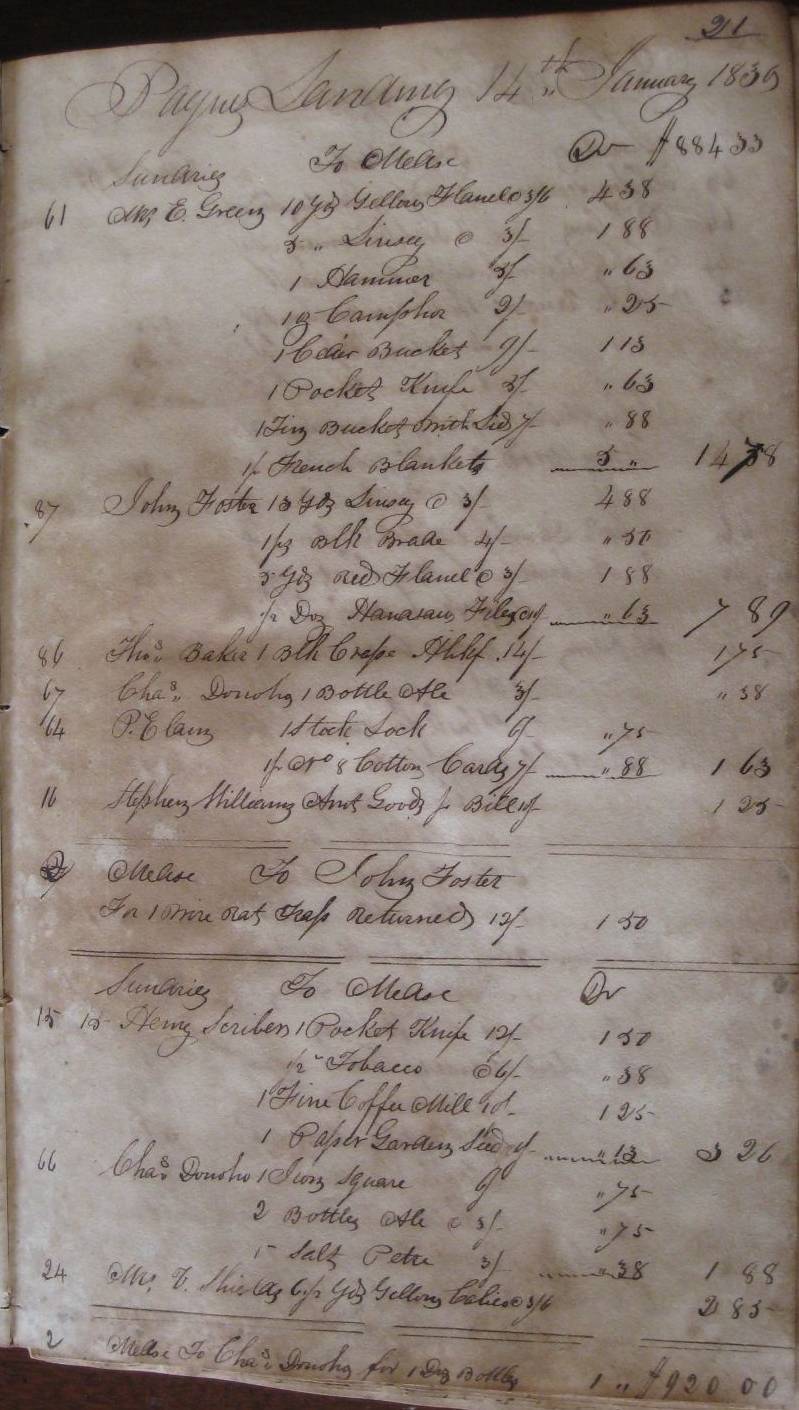 21
Paynes Landing 14th January 1839
Sundries To Mdse Dr $884 33
61 Mrs E. Green 10 Yds Yellow Flanel @ 3/6 4 38
5 " Linsey @ 3/- 1 88
1 Hammer 5/- " 63
1 oz Camphor 2/- " 25
1 Cedar Bucket 9/- 1 13
1 Pocket Knife 5/- " 63
1 Tin Bucket with Lid 7/- " 88
1 pr French Blankets 5 " 14 78
87 John Foster 13 Yds Linsey @ 3/- 4 88
1 ps Blk Brade 4/- " 50
5 Yds Red Flanel @ 3/- 1 88
1/2 Doz Files " 63 7 89
86 Thos. Baker 1 Blk Crape Hhkf 14/- 1 75
67 Chas. Donoho 1 Bottle Ale 3/- " 38
64 P. Elam 1 Stock Lock 6/- " 75
1 pr No 8 Cotton Cards 7/- " 88 1 63
16 Stephen Williams Amt Goods pr Bill 10/- 1 25
Mdse To John Foster
For 1 Wire Rat Trap Returned 12/- 1 50
Sundries To Mdse Dr
15 15 Henry Scriben 1 Pocket Knife 12/- 1 50
1/2 " Tobacco @ 6/- " 38
1 Fine Coffee Mill 10/- 1 25
1 Paper Garden Seed 1/- " 13 3 26
66 Chas. Donoho 1 Iron Square 6/ " 75
2 Bottles Ale @ 3/- " 75
Salt Petre 3/ " 38 1 88
24 Mrs. V. Shields 6 1/2 Yds Yellow Calico @ 3/6 2 85
2 Mdse To Chas. Donoho for 1 Doz Bottles 1 " $920 00